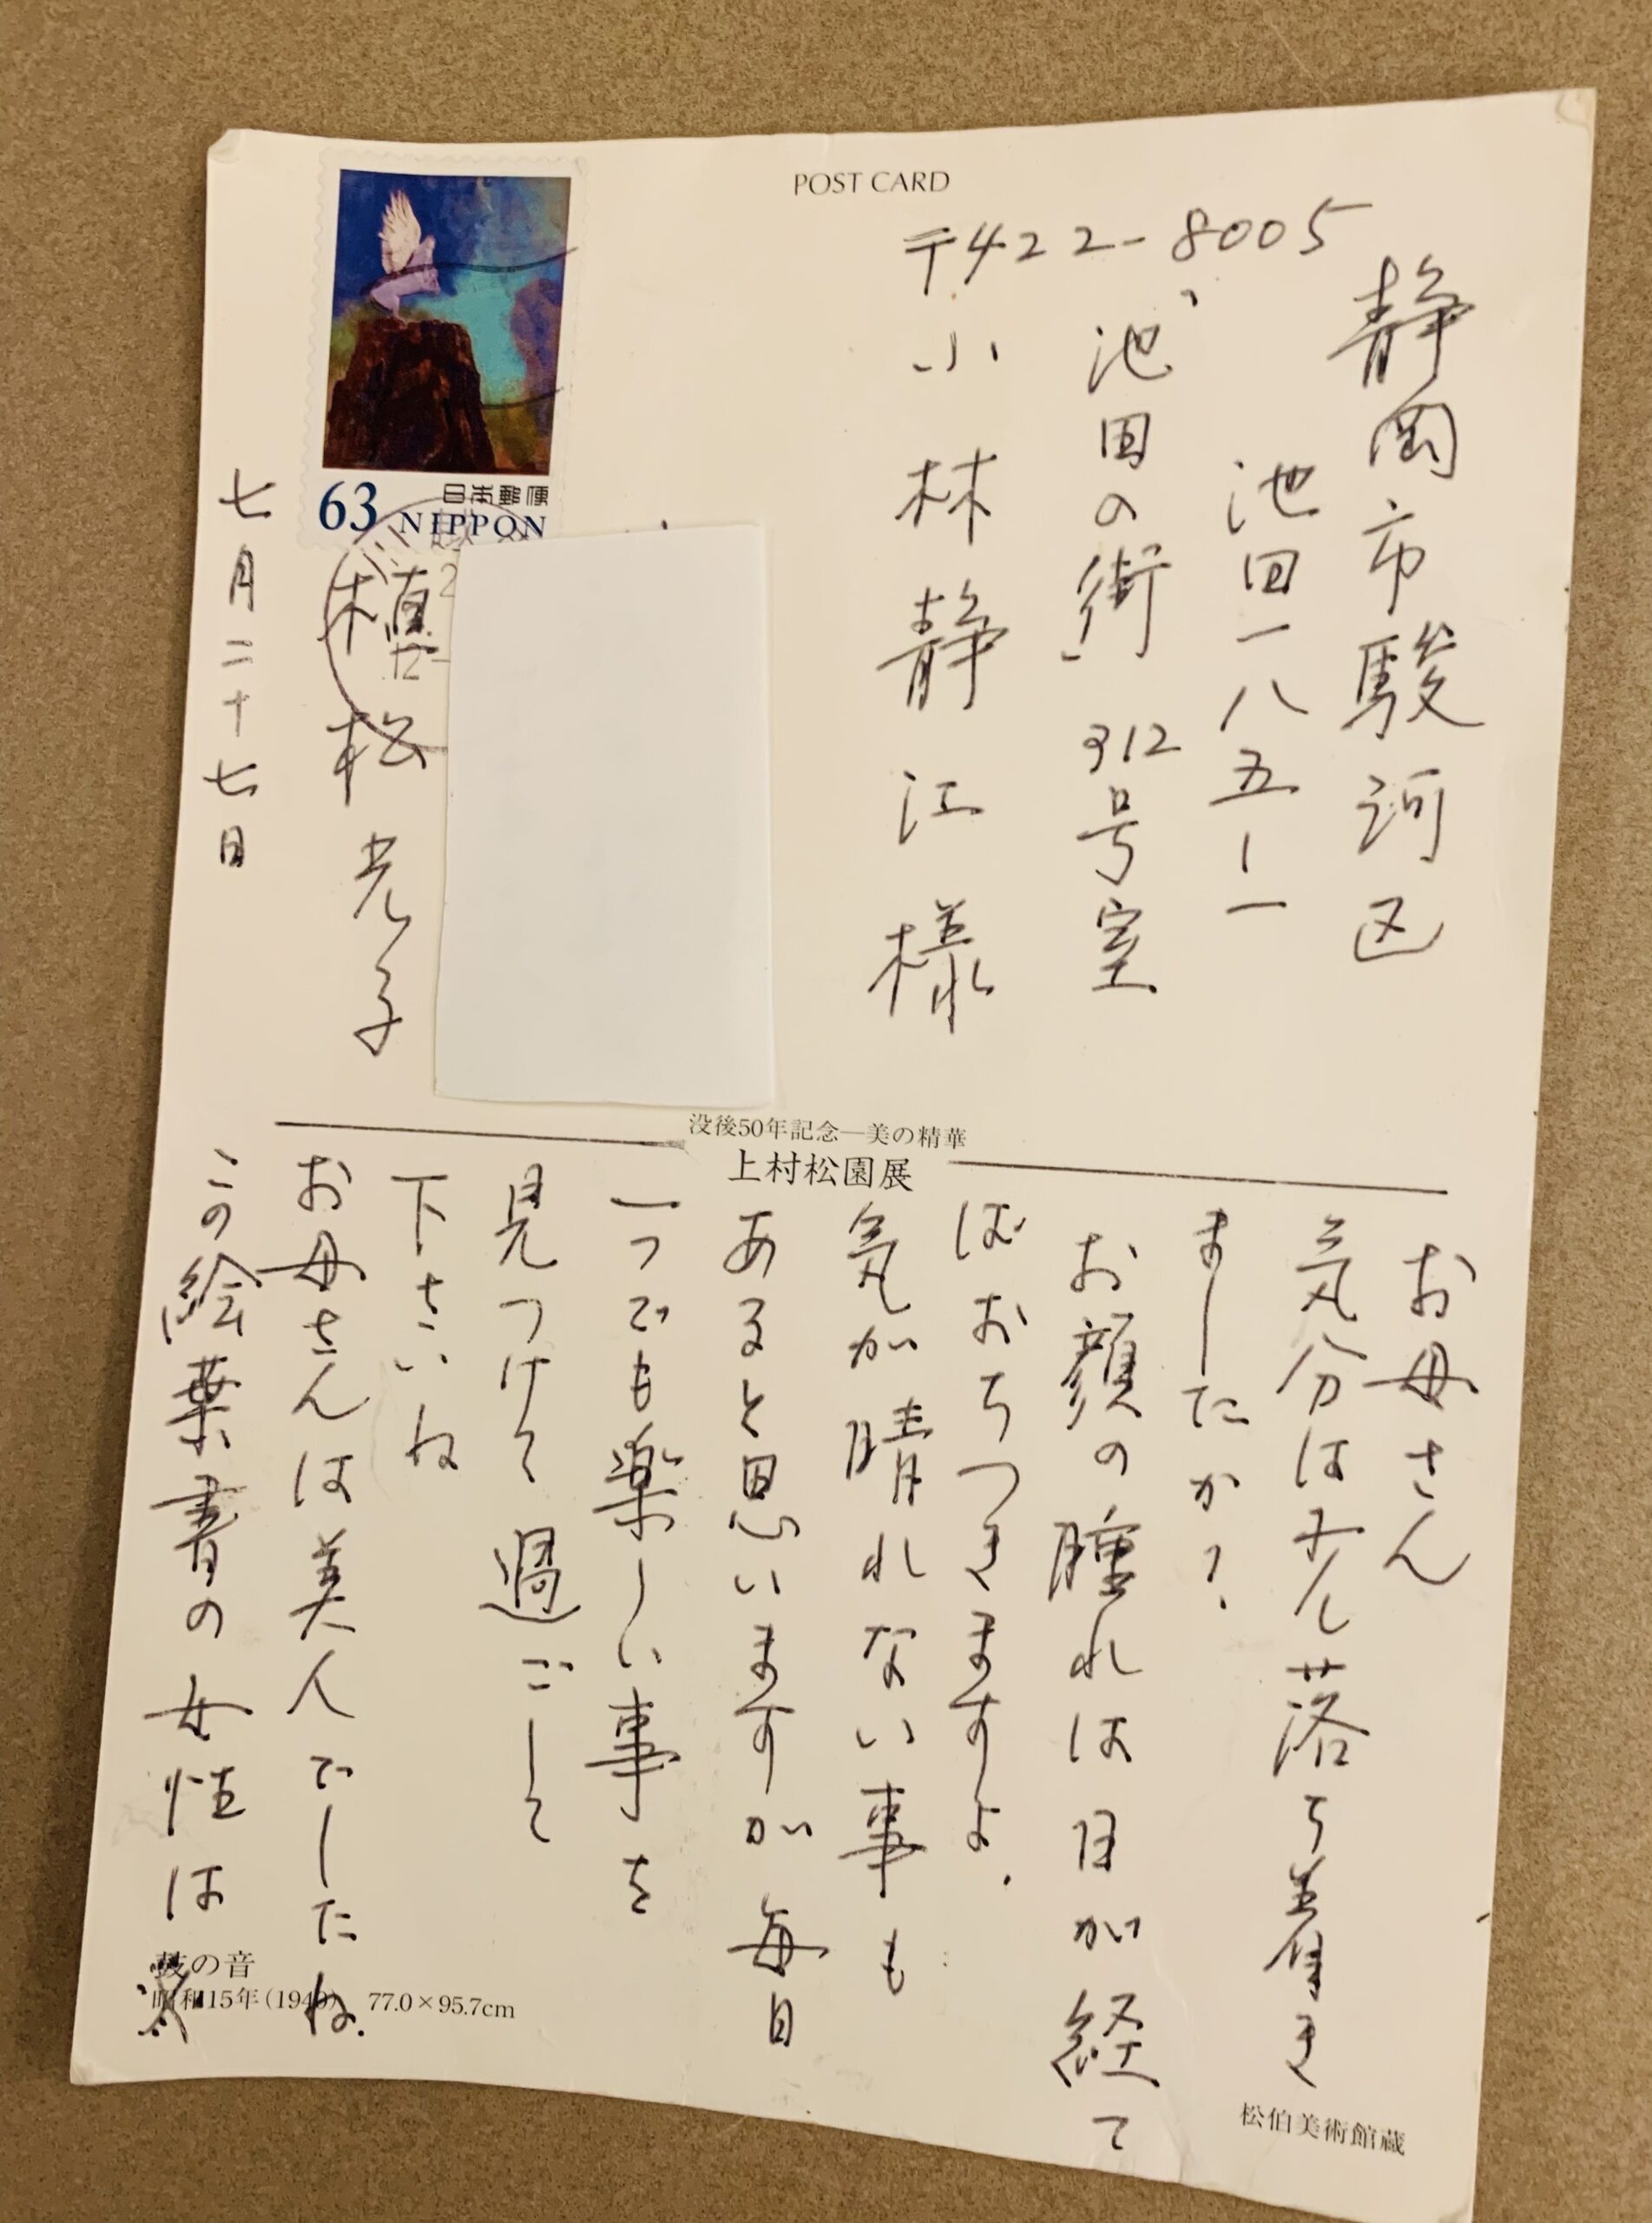 POST CARD
〒422-8005
静岡市駿河区
池田一八五ー一
「池田の街」312号室
小林静江様
63
日本郵便
NIPPON
植松光子
七月二十七日
没後50年記念―美の精華
上村松園展
お母さん
気分は少し落ち着き
ましたか?
お顔の腫れは日が経て
ばおちつきますよ.
気が晴れない事も
あると思いますが毎日
一つでも楽しい事を
見つけて過ごして
下さいね
お母さんは美人でしたね.
この絵葉書の女性は
鼓の音
昭和15年(1940) 77.0×95.7cm
松伯美術館蔵